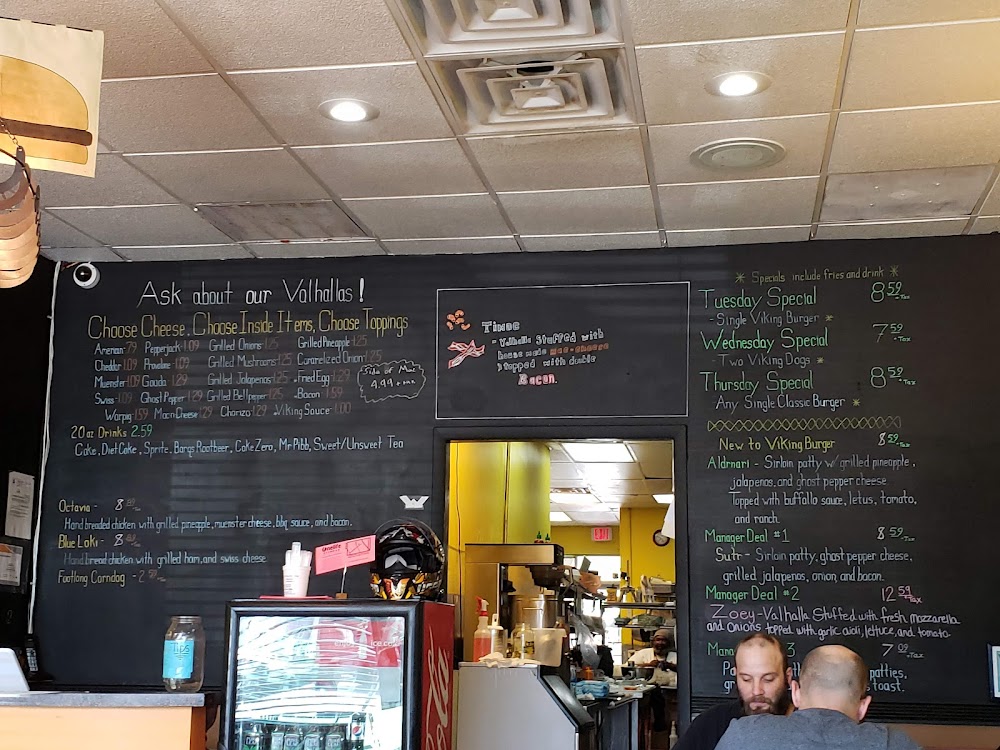 Ask about our Valhallas!
Choose Cheese, Choose Inside Items, Choose Toppings
American .79 Pepperjack 1.09 Grilled Onions 1.25 Grilled Pineapple 1.25
Cheddar 1.09 Provolone 1.09 Grilled Mushrooms 1.25 Caramelized Onion 1.25
Muenster 1.09 Gouda 1.29 Grilled Jalapenos 1.25 Fried Egg 1.29
Swiss 1.09 Ghost Pepper 1.29 Grilled Bell peper 1.25 Bacon 1.59
1.59 Mac n Cheese 1.29 Chorizo 1.29 Viking Sauce 1.00
Side of Mac
4.99 + tax
20 oz Drinks 2.59
Coke, Diet Coke, Sprite, Barqs Rootbeer, Coke Zero, Mr Pibb, Sweet/Unsweet Tea
Octavia - 8
Hand breaded chicken with grilled pineapple, muenster cheese, bbq sauce, and bacon.
Blue Loki - 8
Hand bread chicken with grilled ham, and swiss cheese
Footlong Corndog - 2
- Valhalla Stuffed with
house made mac-cheese
topped with double
Bacon.
* Specials include fries and drink *
Tuesday Special 8.59 +Tax
- Single Viking Burger *
Wednesday Special 7.59 +Tax
- Two Viking Dogs *
Thursday Special 8.59 +Tax
Any Single Classic Burger *
New to Viking Burger 8.59 +Tax
Aldrnari - Sirloin patty w/ grilled pineapple,
jalapenos, and ghost pepper cheese
Topped with buffalo sauce, letus, tomato,
and ranch.
Manager Deal #1 8.59 +Tax
Sutr - Sirloin patty, ghost pepper cheese,
grilled jalapenos, onion, and bacon.
Manager Deal #2 12.59 +Tax
Zoey - Valhalla Stuffed with fresh mozzarella
and onions topped with garlic aioli, lettuce, and tomato
3 7.09 +Tax
patties,
toast.
EXIT
TIPS